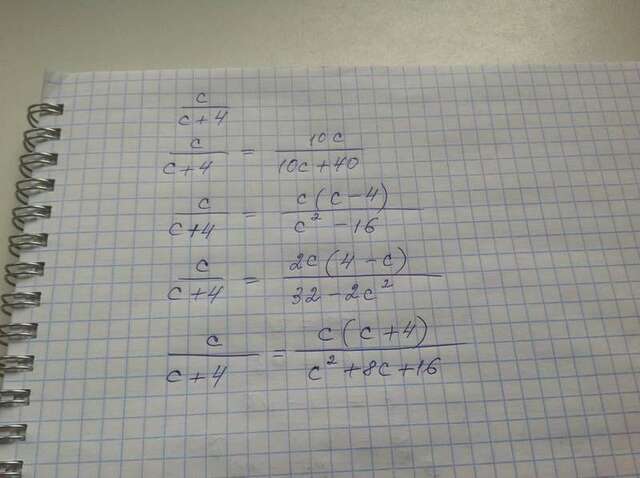 c/(c+4)
c/(c+4) = 10c/(10c+40)
c/(c+4) = c(c-4)/(c²-16)
c/(c+4) = 2c(4-c)/(32-2c²)
c/(c+4) = c(c+4)/(c²+8c+16)